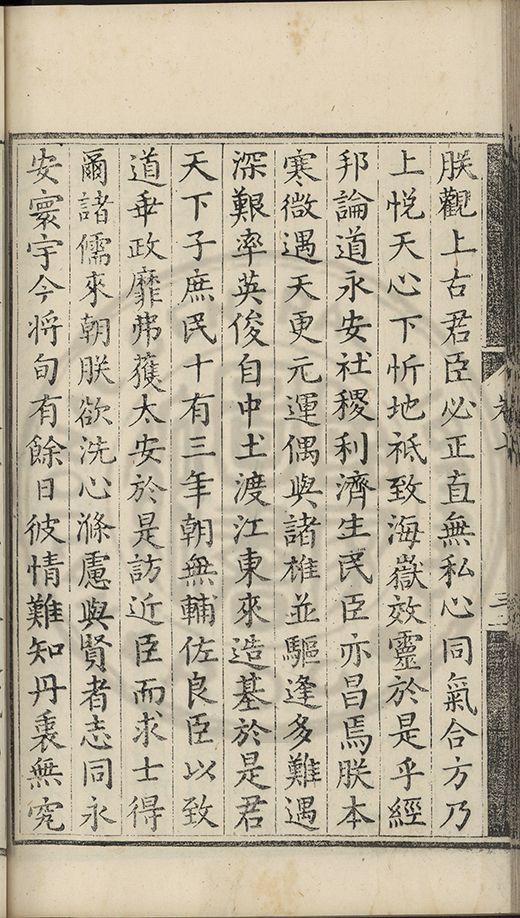 朕觀上古君臣必正直無私心同氣合方乃
上悦天心下忻地祇致海嶽效靈於是乎經
邦論道永安社稷利濟生民臣亦昌焉朕本
寒微遇天更元運偶與諸雄並驅逢多難遇
深艱率英俊自中土渡江東來造基於是君
天下子庶民十有三年朝無輔佐良臣以致
道乖政靡弗獲太安於是訪近臣而求士得
爾諸儒來朝朕欲洗心滌慮與賢者志同永
安寰宇今將旬有餘日彼情難知丹衷無究
卷七